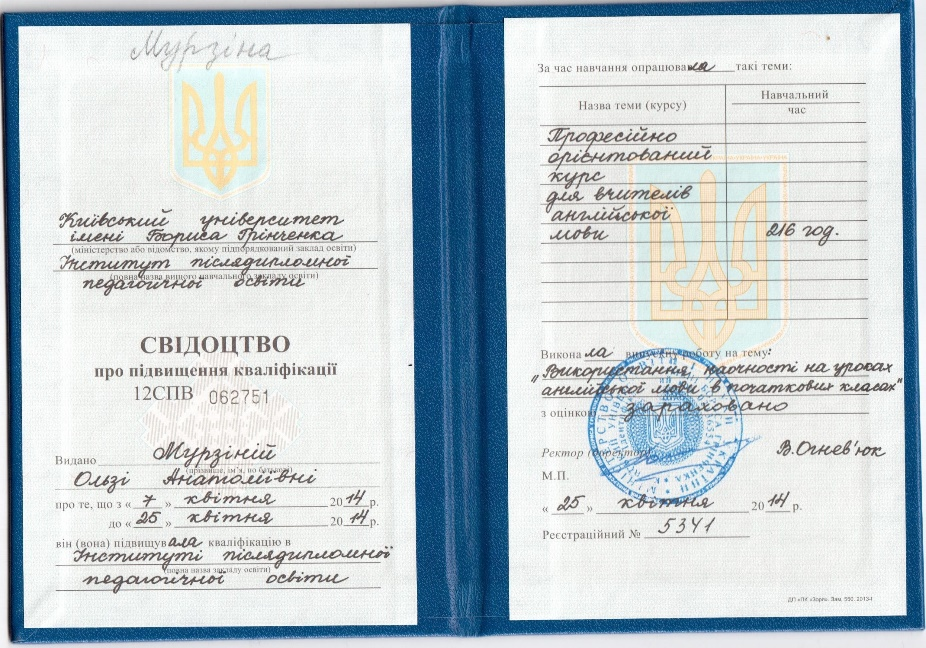 Мурзіна
Київський університет
імені Бориса Грінченка
(міністерство або відомство, якому підпорядкований заклад освіти)
Інститут післядипломної
(повна назва вищого навчального закладу освіти)
педагогічної освіти
СВІДОЦТВО
про підвищення кваліфікації
12СПВ 062751
Видано Мурзіній
(прізвище, ім'я, по батькові)
Ользі Анатоліївні
про те, що з « 7 » квітня 2014 р.
до « 25 » квітня 2014 р.
він (вона) підвищувала кваліфікацію в
Інституті післядипломної
(повна назва закладу освіти)
педагогічної освіти
За час навчання опрацювала такі теми:
Назва теми (курсу)
Навчальний
час
Професійно
орієнтований
курс
для вчителів
англійської
мови 216 год.
Виконала випускну роботу на тему:
"Використання наочності на уроках
англійської мови в початкових класах"
з оцінкою зараховано
Ректор (директор) В.Огнев'юк
М.П.
« 25 » квітня 2014 р.
Реєстраційний № 5341
ДП «ПК «Зоря». Зам. 550. 2013-І